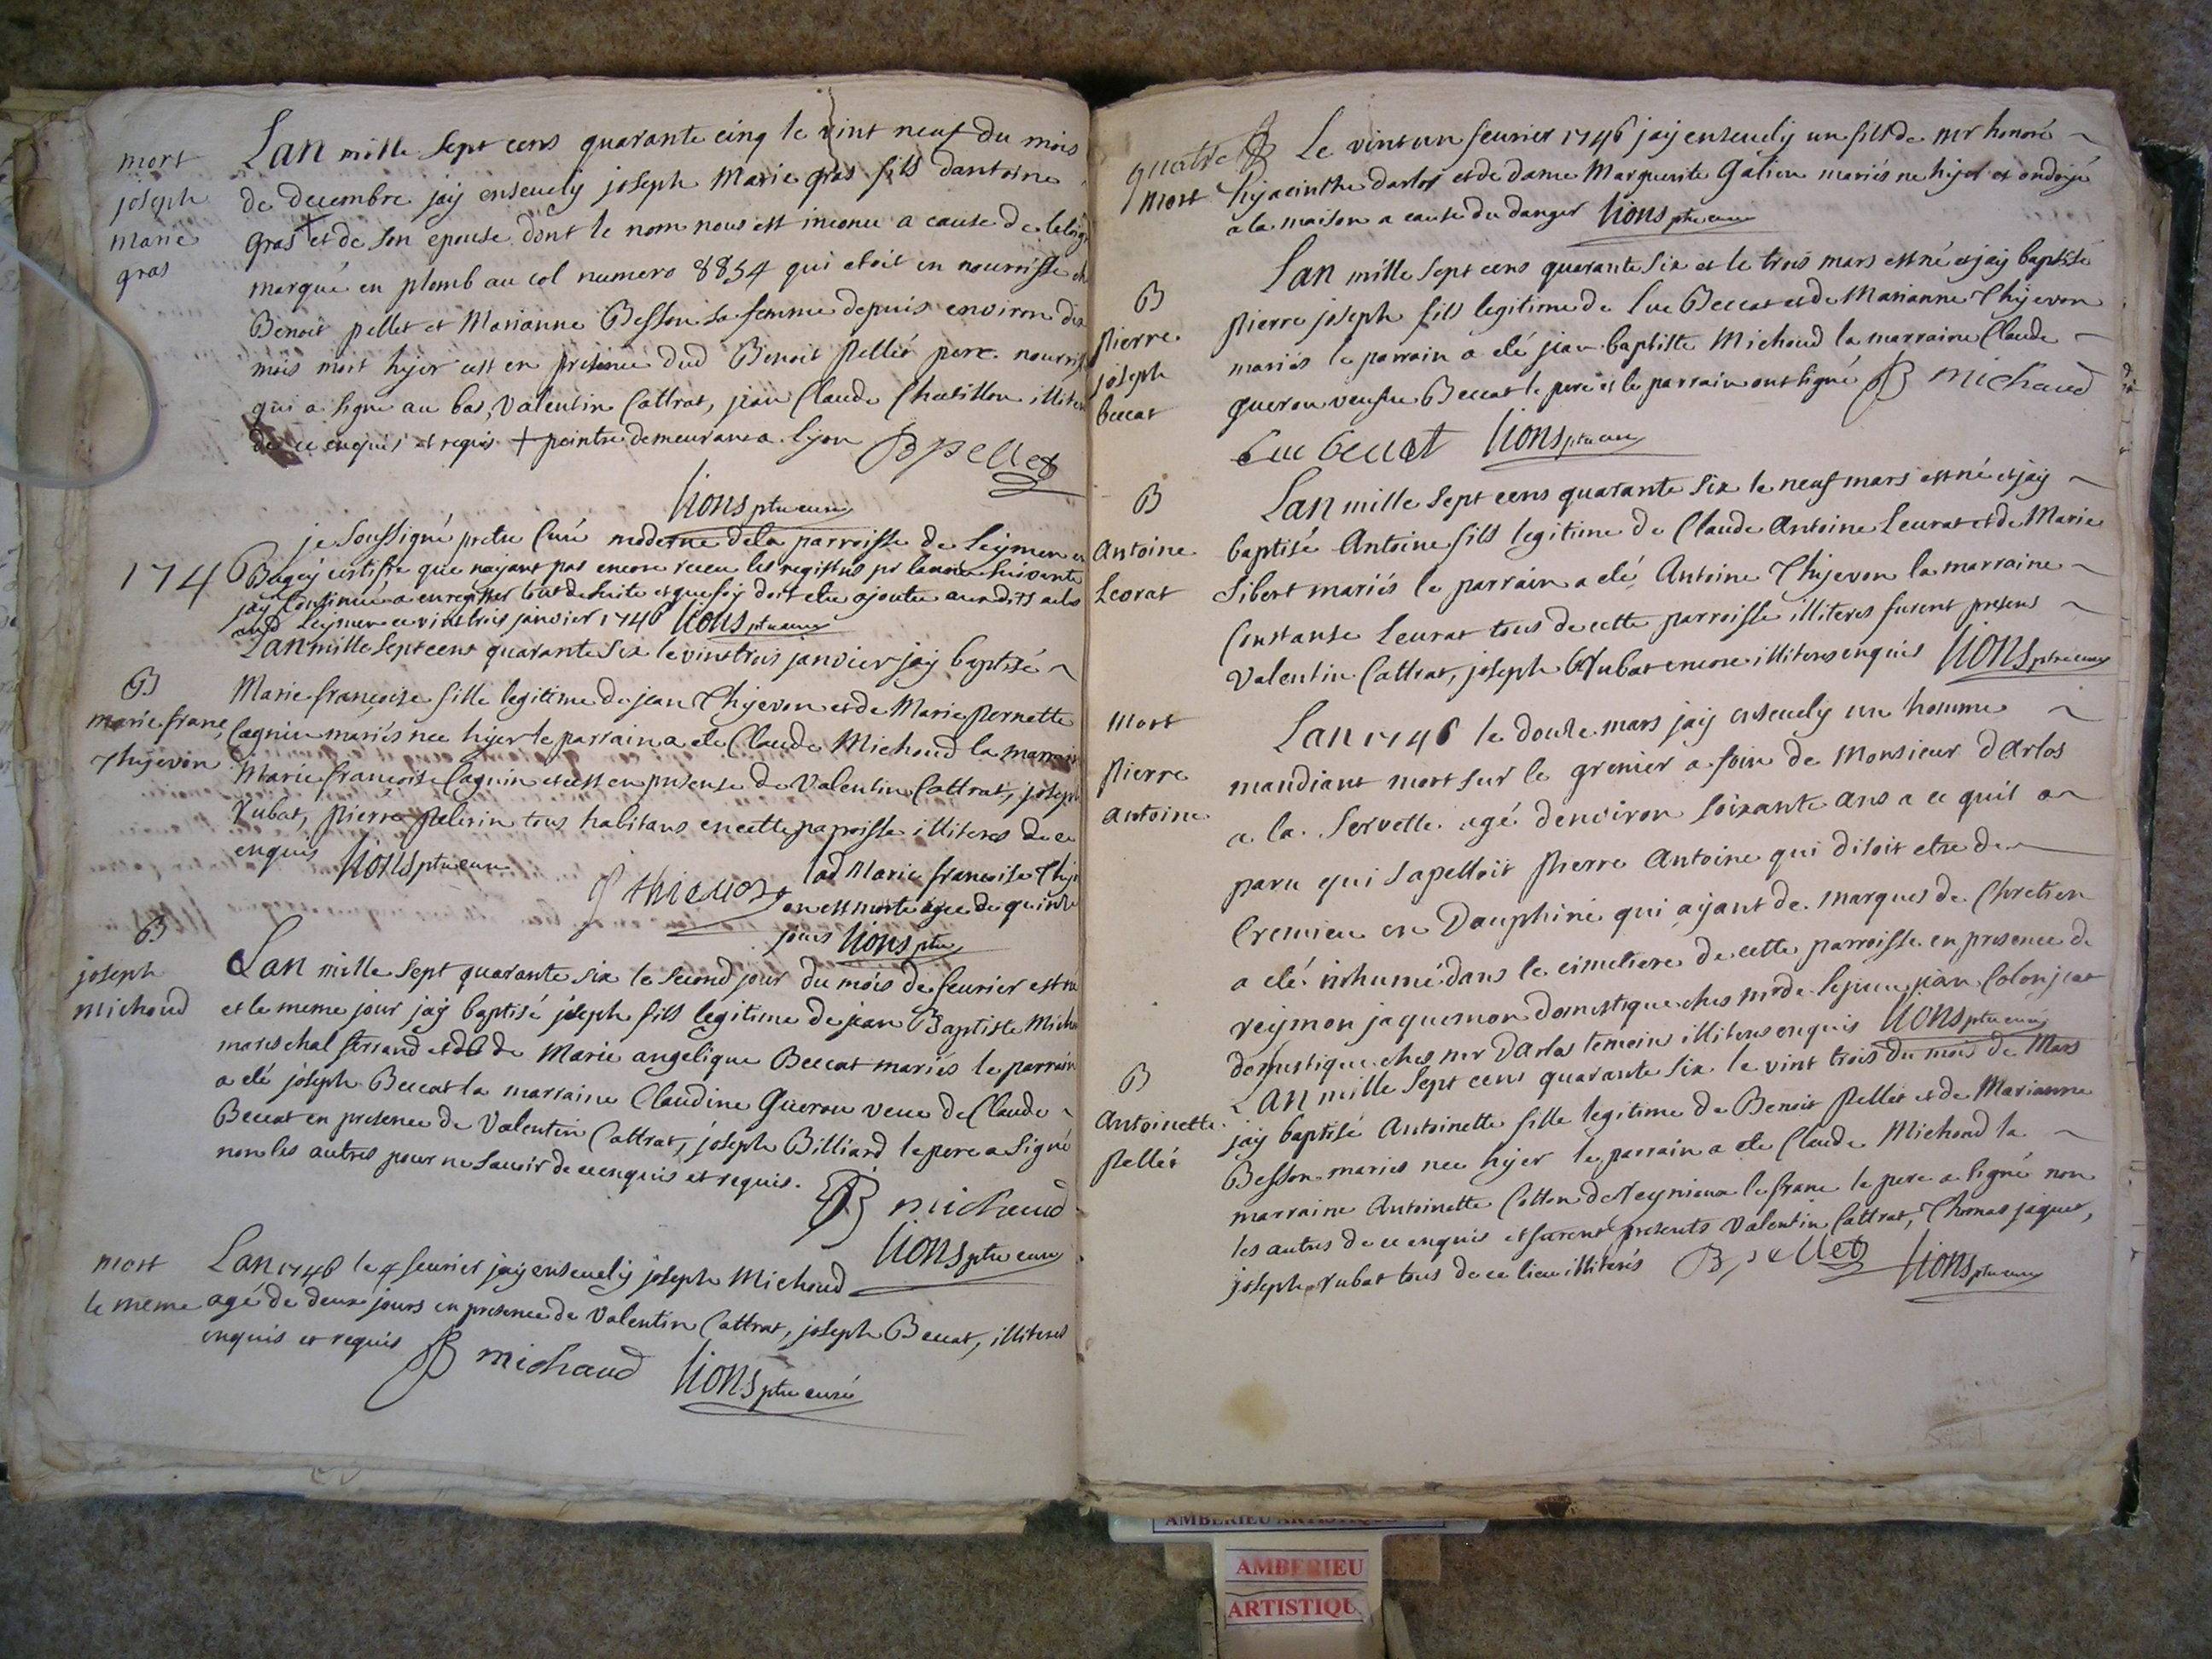 mort
joseph
marie
gras
Lan mille Sept cens quarante cinq le vint neuf du mois
de decembre jaÿ enseuelÿ joseph Marie gras fils dantoine
gras + et de son epouse dont le nom nous est inconu a cause de
marqué en plomb au col numero 8854 qui etoit en nourrisse
Benoit pellet et Marianne Besson sa femme depuis environ dix
mois mort hÿer cest en presence dud Benoit Pellet pere nourri
qui a signé au bas, Valentin Cattrat, jean Claude Chatillon illiter
de ce enquis et requis + peintre demeurans a Lyon B pellet
Lions ptre curé
1746
je soussigné pretre Curé moderne de la parroisse de Leÿmen en
Bugeÿ certifie que naÿant pas encore receu les registres pr lannée suivante
jaÿ Continué a enregitrer tout de suite et que foÿ doit etre ajoutée auxdits actes
aud Leymen ce vint trois janvier 1746 Lions ptre curé
B
marie franc
Thÿevon
Lan mille Sept cens quarante Six le vint trois janvier jaÿ baptisé
Marie françoise fille legitime de jean Thÿevon et de Marie Pernette
Cagnin mariés nee hÿer le parrain a eté Claude Michoud la marrain
Marie françoise Cagnin et cest en presence de Valentin Cattrat, joseph
Rubat, Pierre Pelerin tous habitans en cette parroisse illiteres de ce
enquis Lions ptre curé
J thievon
lad Marie francoise Thÿe
on est morte agee de quinze
jours Lions ptre
B
joseph
Michoud
Lan mille Sept quarante six le second jour du mois de feurier est né
et le meme jour jaÿ baptisé joseph fils legitime de jean Baptiste Micho
mareschal ferrand et de Marie angelique Beccat mariés le parrain
a eté joseph Beccat la marraine Claudine Gueron veue de Claude
Beccat en presence de Valentin Cattrat, joseph Billiard le pere a signé
non les autres pour ne scauoir de ce enquis et requis. JB michaud
Lions ptre curé
mort
le meme
Lan 1746 le 4 feurier jaÿ enseuelÿ joseph Michoud
agé de deux jours en presence de Valentin Cattrat, joseph Beccat, illiteres
enquis et requis JB michaud Lions ptre curé
quatre
mort
Le vint un feurier 1746 jaÿ enseuelÿ un fils de mr honoré
hÿacinthe darlos et de dame Marguerite Galien mariés ne hÿer et ondoÿé
a la maison a cause du danger Lions ptre curé
B
Pierre
joseph
beccat
Lan mille Sept cens quarante Six et le trois mars est né et jaÿ baptisé
Pierre joseph fils legitime de Luc Beccat et de Marianne Thÿevon
mariés le parrain a eté jean baptiste Michoud la marraine Claude
gueron veufue Beccat le pere et le parrain ont signé JB michaud
Luc beccat Lions ptre curé
B
Antoine
Leorat
Lan mille Sept cens quarante Six le neuf mars est né et jaÿ
baptisé Antoine fils legitime de Claude Antoine Leurat et de Marie
Sibert mariés le parrain a eté Antoine Thÿevon la marraine
Constanse Leurat tous de cette parroisse illiteres furent presens
Valentin Cattrat, joseph Rubat encore illiteres enquis Lions ptre curé
Mort
Pierre
antoine
Lan 1746 le douze mars jaÿ enseuelÿ un homme
mandiant mort sur le grenier a foin de Monsieur dArlos
a la Servette agé denviron soixante ans a ce quil a
paru qui sapelloit Pierre Antoine qui disoit etre de
Cremieu en Dauphiné qui aÿant de marques de Chretien
a eté inhumé dans le cimetiere de cette parroisse en presence de
reÿmon jaquemon domestique ches mr de jean Colonjeat
domestique ches mr dArlos temoins illiteres enquis Lions ptre curé
B
Antoinette
Pellet
Lan mille Sept cens quarante Six le vint trois du mois de Mars
jaÿ baptisé Antoinette fille legitime de Benoit Pellet et de Marianne
Besson mariés nee hÿer le parrain a eté Claude Michoud la
marraine Antoinette Cotton de leÿmieux le franc le pere a signé non
les autres de ce enquis et furent presents Valentin Cattrat, Thomas jaquet,
joseph Rubat tous de ce lieu illiterés B pellet Lions ptre curé
AMBERIEU ARTISTIQUE
AMBERIEU
ARTISTIQU